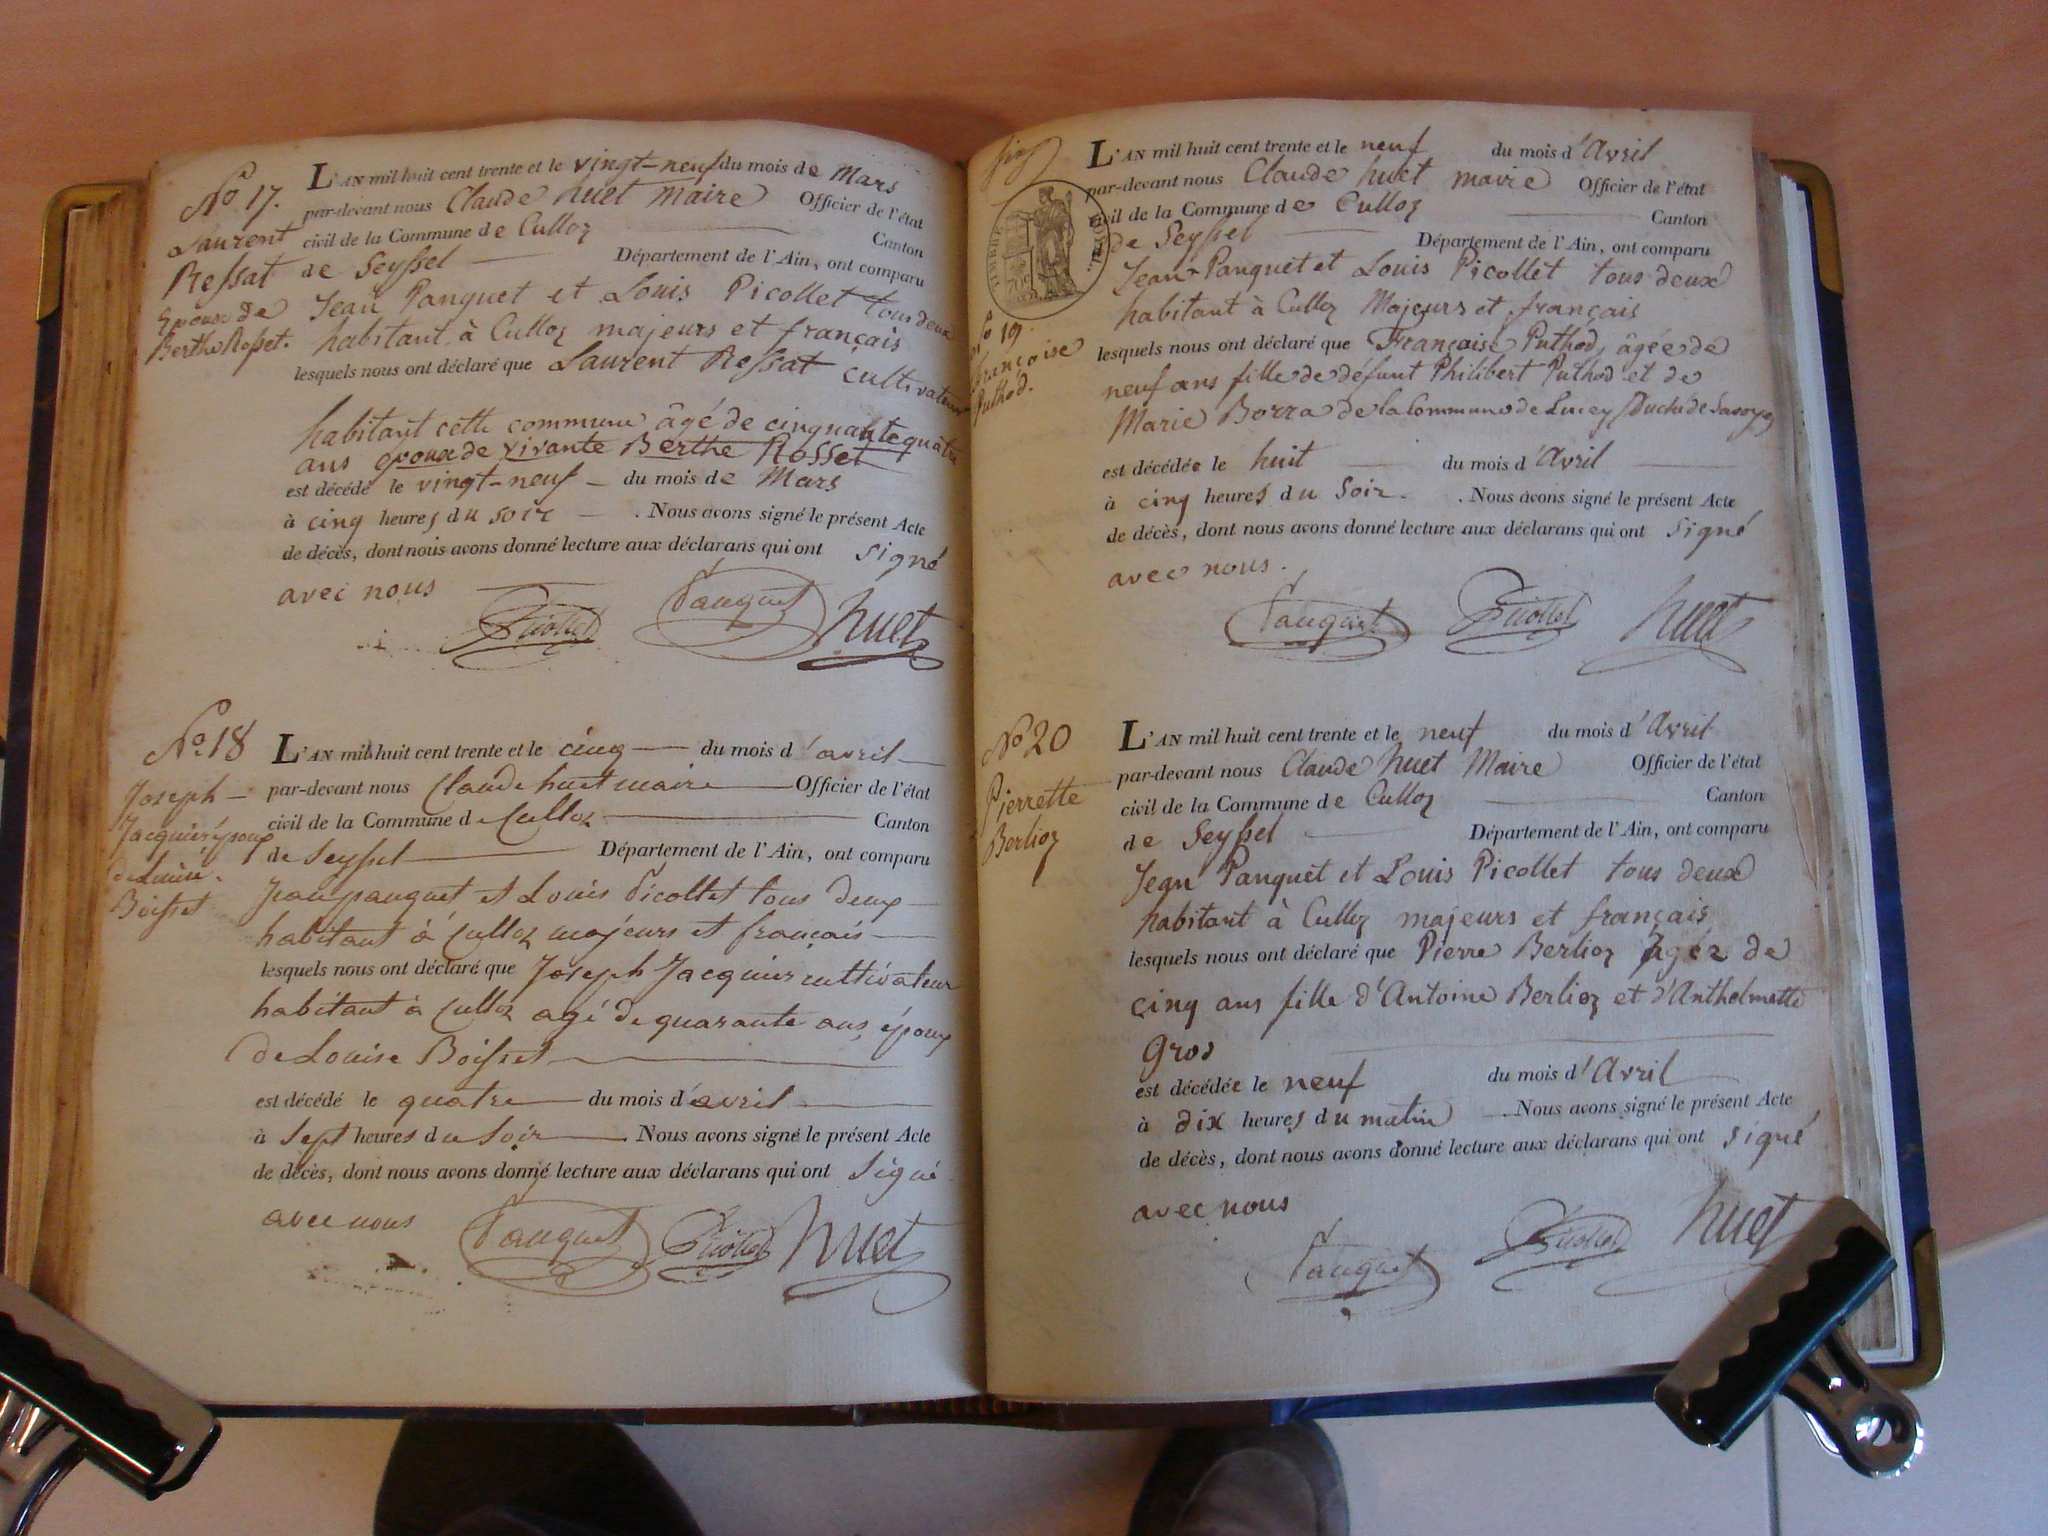 No 17.
Laurent
Ressat
Epoux de
Berthe Rosset.
L'AN mil huit cent trente et le vingt-neuf du mois de Mars
par-devant nous Claude huet Maire Officier de l'état
civil de la Commune de Culloz Canton
de Seyssel Département de l'Ain, ont comparu
Jean Panquet et Louis Picollet tous deux
habitant à Culloz majeurs et français
lesquels nous ont déclaré que Laurent Ressat cultivateur
habitant cette commune âgé de cinquante quatre
ans epoux de vivante Berthe Rosset
est décédé le vingt-neuf du mois de Mars
à cinq heures du soir. Nous avons signé le présent Acte
de décès, dont nous avons donné lecture aux déclarans qui ont signé
avec nous
Picollet Panquet huet
No. 18
Joseph
Jacquier époux
de Louise
Boisset
L'AN mil huit cent trente et le cinq du mois d'avril
par-devant nous Claude huet maire Officier de l'état
civil de la Commune de Culloz Canton
de Seyssel Département de l'Ain, ont comparu
Jean panquet et Louis Picollet tous deux
habitant à Culloz majeurs et français
lesquels nous ont déclaré que Joseph Jacquier cultivateur
habitant à Culloz agé de quarante ans époux
de Louise Boisset
est décédé le quatre du mois d'avril
à sept heures du soir. Nous avons signé le présent Acte
de décès, dont nous avons donné lecture aux déclarans qui ont signé
avec nous
Panquet Picollet huet
TIMBRE ROYAL
No 19.
françoise
Puthod.
L'AN mil huit cent trente et le neuf du mois d'Avril
par-devant nous Claude huet maire Officier de l'état
civil de la Commune de Culloz Canton
de Seyssel Département de l'Ain, ont comparu
Jean Panquet et Louis Picollet tous deux
habitant à Culloz Majeurs et français
lesquels nous ont déclaré que Françoise Puthod, âgée de
neuf ans fille de défunt Philibert Puthod et de
Marie Borra de la Commune de Lucey Duché de Savoye
est décédée le huit du mois d'Avril
à cinq heures du Soir. Nous avons signé le présent Acte
de décès, dont nous avons donné lecture aux déclarans qui ont signé
avec nous.
Panquet Picollet huet
No 20
Pierrette
Berlioz
L'AN mil huit cent trente et le neuf du mois d'Avril
par-devant nous Claude huet Maire Officier de l'état
civil de la Commune de Culloz Canton
de Seyssel Département de l'Ain, ont comparu
Jean Panquet et Louis Picollet tous deux
habitant à Culloz majeurs et français
lesquels nous ont déclaré que Pierre Berlioz âgée de
cinq ans fille d'Antoine Berlioz et d'Anthelmette
Gros
est décédée le neuf du mois d'Avril
à dix heures du matin. Nous avons signé le présent Acte
de décès, dont nous avons donné lecture aux déclarans qui ont signé
avec nous
Panquet Picollet huet